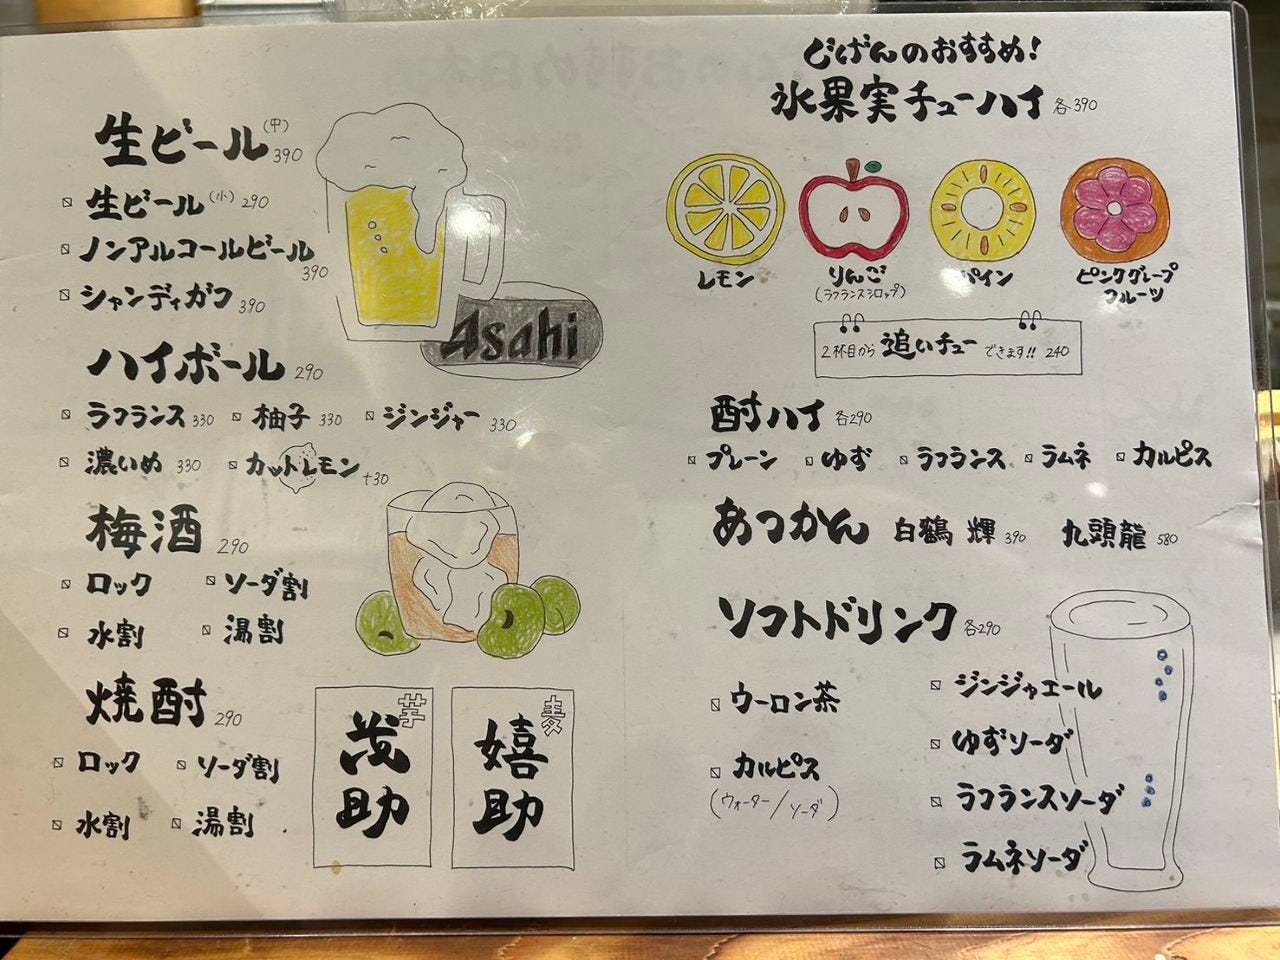 生ビール(中)390
生ビール(小)290
ノンアルコールビール
390
シャンディガフ 390
Asahi
ハイボール 290
ラフランス 330 柚子 330 ジンジャー 330
濃いめ 330 カットレモン +30
梅酒 290
ロック ソーダ割
水割 湯割
焼酎 290
ロック ソーダ割
水割 湯割
芋
茂助
麦
嬉助
じげんのおすすめ!
氷果実チューハイ 各390
レモン りんご パイン ピンクグレープ
(ラフランスシロップ) フルーツ
2杯目から 追いチュー できます!! 240
酎ハイ 各290
プレーン ゆず ラフランス ラムネ カルピス
あつかん 白鶴 輝 390 九頭龍 580
ソフトドリンク 各290
ウーロン茶
カルピス
(ウォーター/ソーダ)
ジンジャエール
ゆずソーダ
ラフランスソーダ
ラムネソーダ